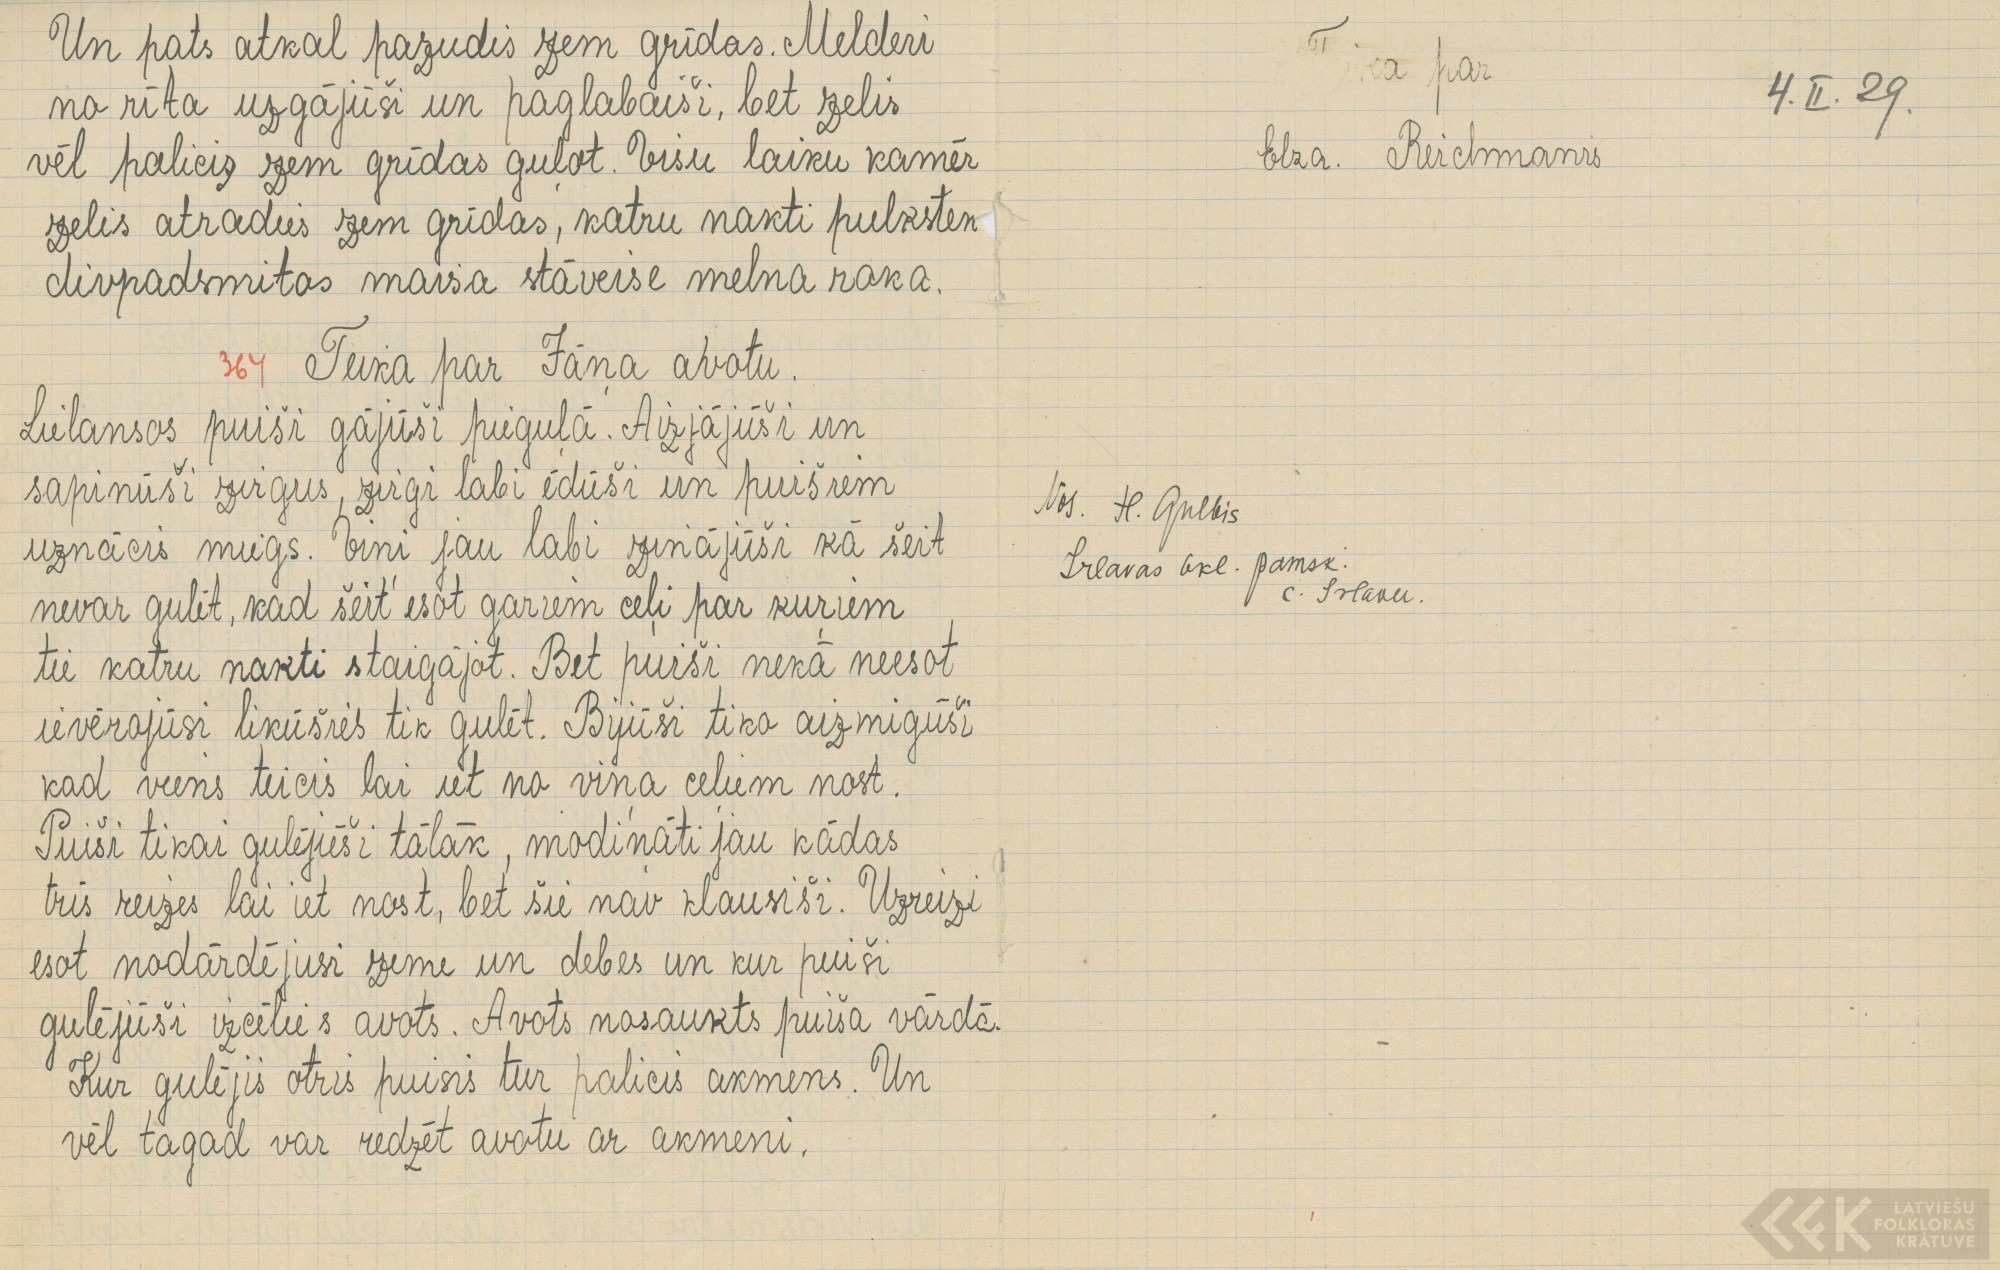 Un pats atkal pazudis zem grīdas. Melderi
no rīta uzgājūši un paglabaiši, bet zelis
vēl palicis zem grīdas guļot. Visu laiku kamēr
zelis atradies zem grīdas, katru nakti pulksten
divpadsmitos maisa stāveise melna roka.
364 Teika par Jāņa avotu.
Lielansos puiši gājūši pieguļā. Aizjājūši un
sapinūši zirgus, zirgi labi ēdūši un puišiem
uznācis miegs. Viņi jau labi zinājūši kā šeit
nevar gulēt, kad šeit esot gariem ceļi par kuŗiem
tie katru nakti staigājot. Bet puiši nekā neesot
ievērojūsi likūšiēs tik gulēt. Bijūši tiko aizmigūši
kad viens teicis lai iet no viņa celiem nost.
Puiši tikai gulējūši tālāk, modināti jau kādas
trīs reizes lai iet nost, bet šie nav klausiši. Uzreizi
esot nodārdējusi zeme un debes un kur puiši
gulējūši izcēlies avots. Avots nosaukts puiša vārdā.
Kur gulējis otris puisis tur palicis akmens. Un
vēl tagad var redzēt avotu ar akmeni.
par
4. II. 29.
Elza. Reichmanis
Nos. H. Gulbis
Irlavas 6kl. pamsk.
c. Irlavu.
LATVIEŠU
FOLKLORAS
KRĀTUVE